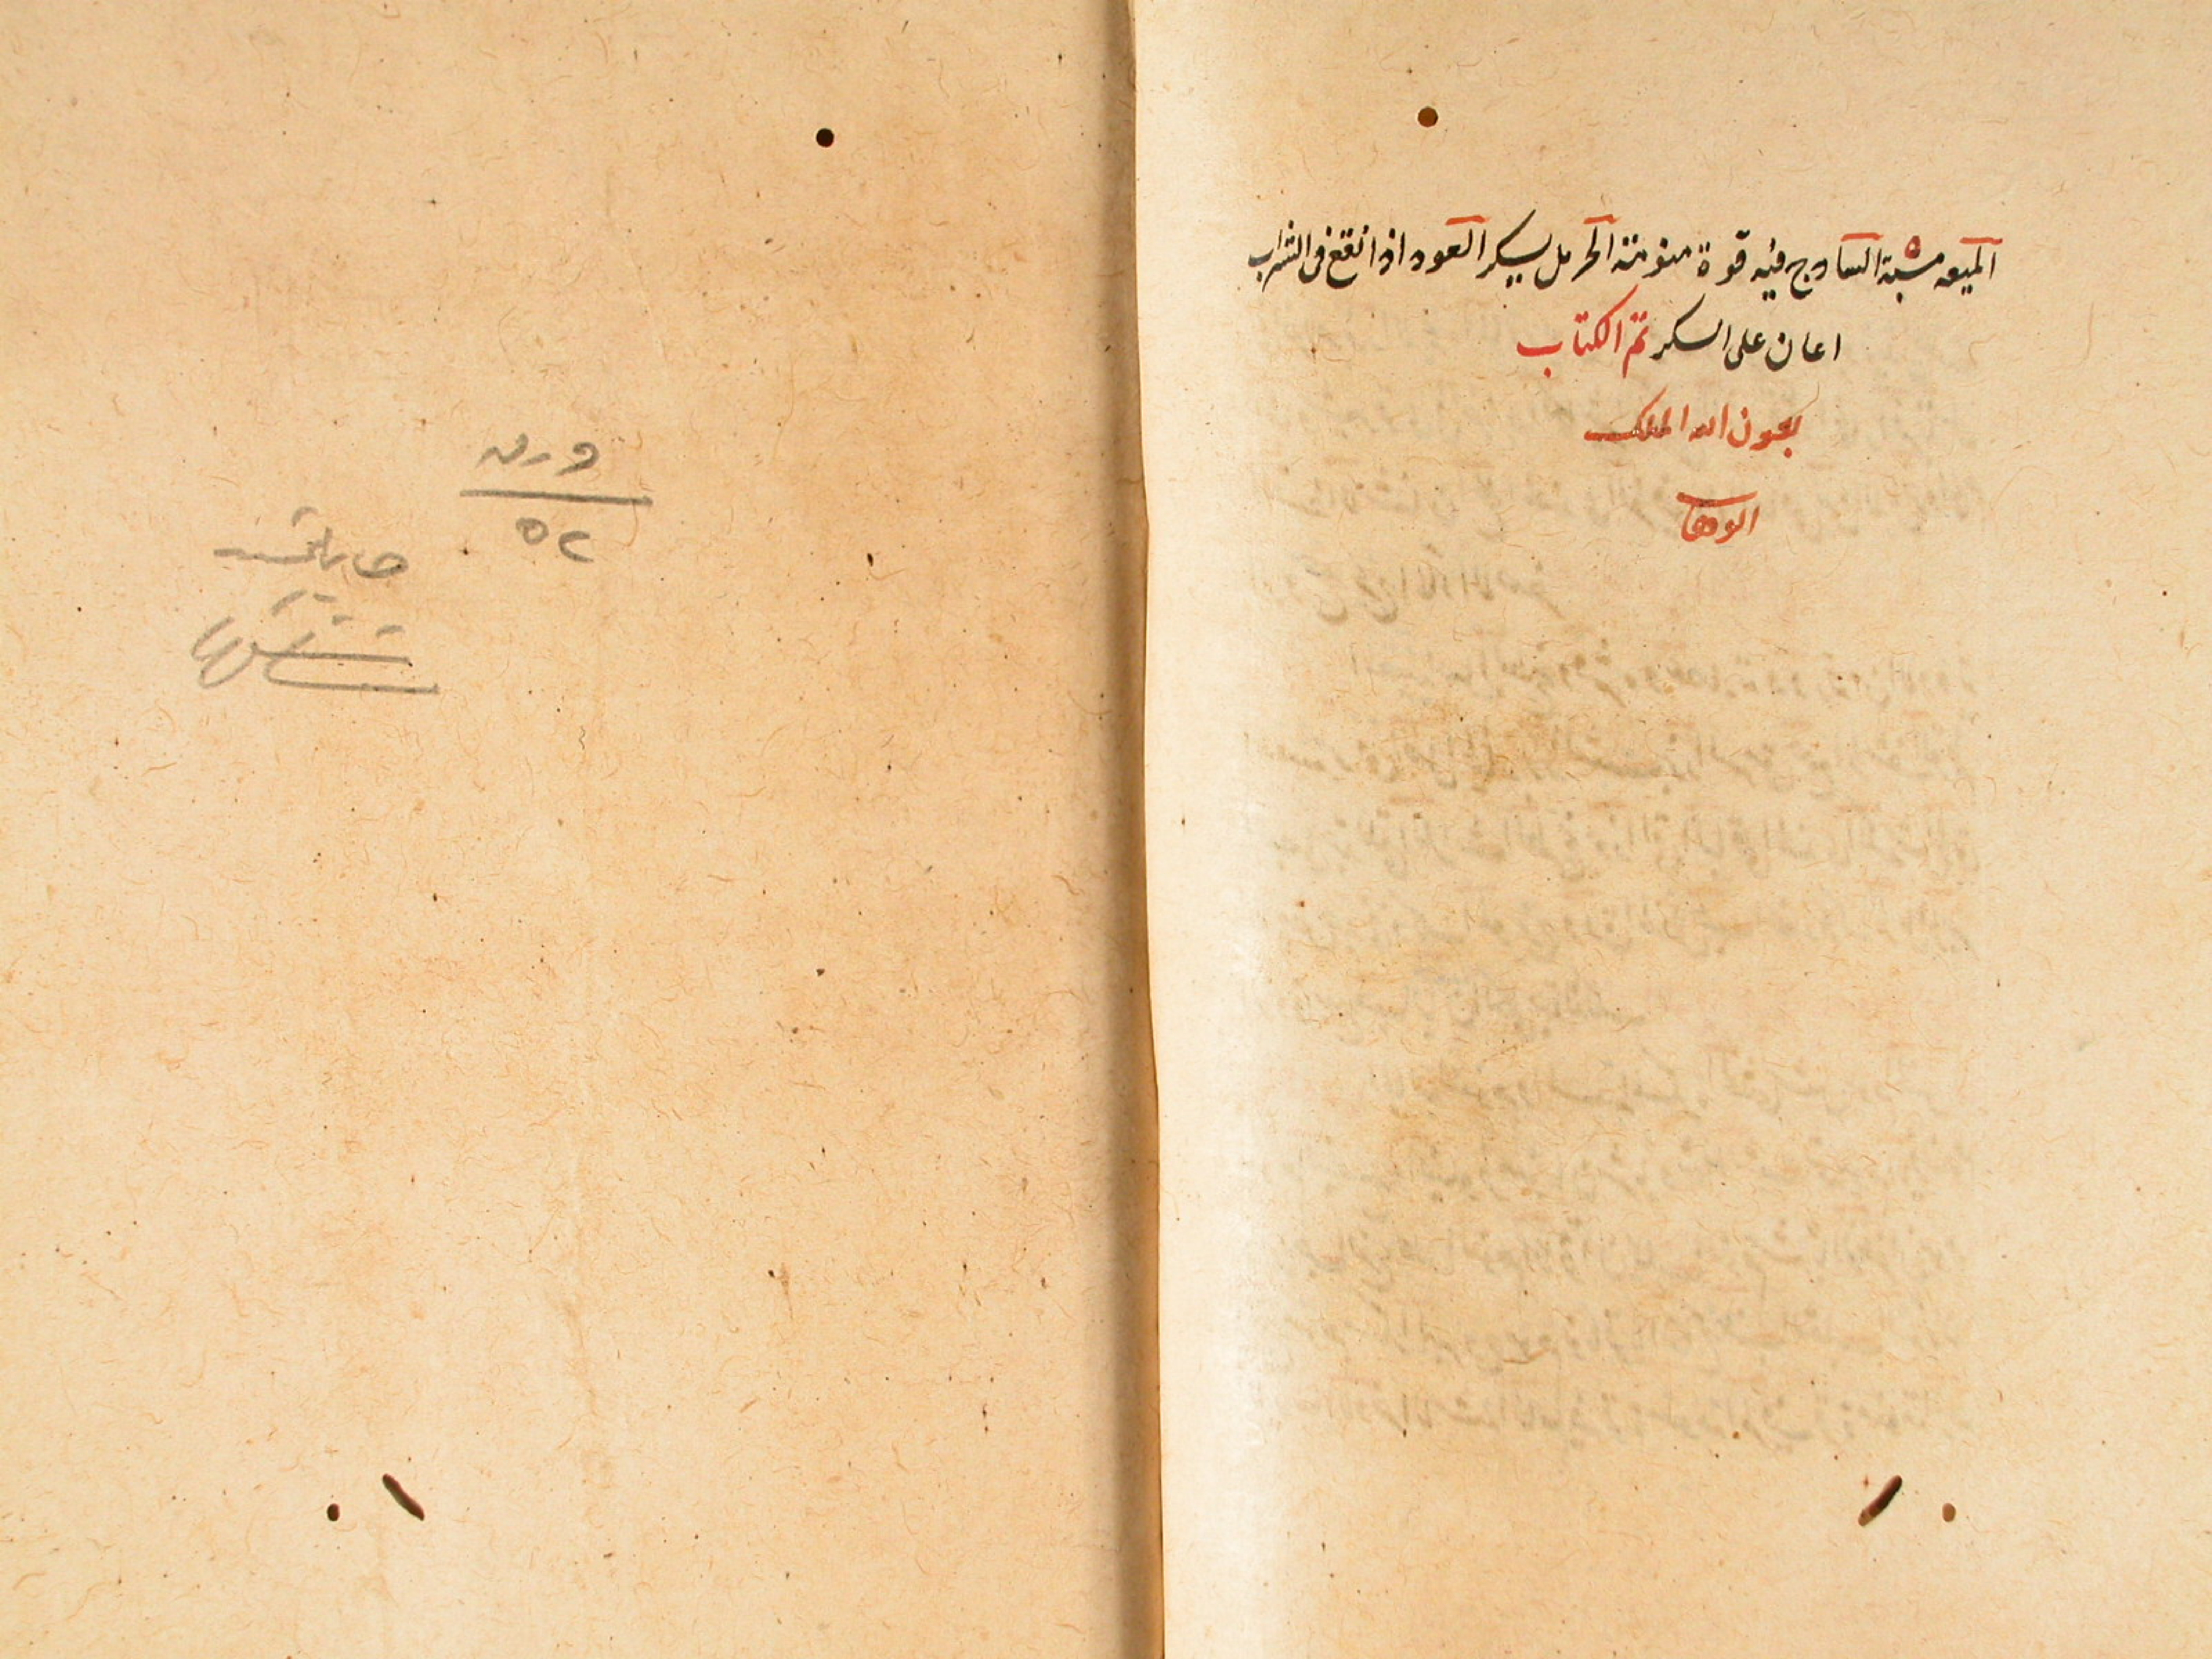 الميعه مسبتة الساوج فيه قوة منومته الحرمل يسكر العود اذا انقع فى الشراب
اعان على السكر تم الكتاب
بعون الله الملك
الوهاب
ورق
٥٢